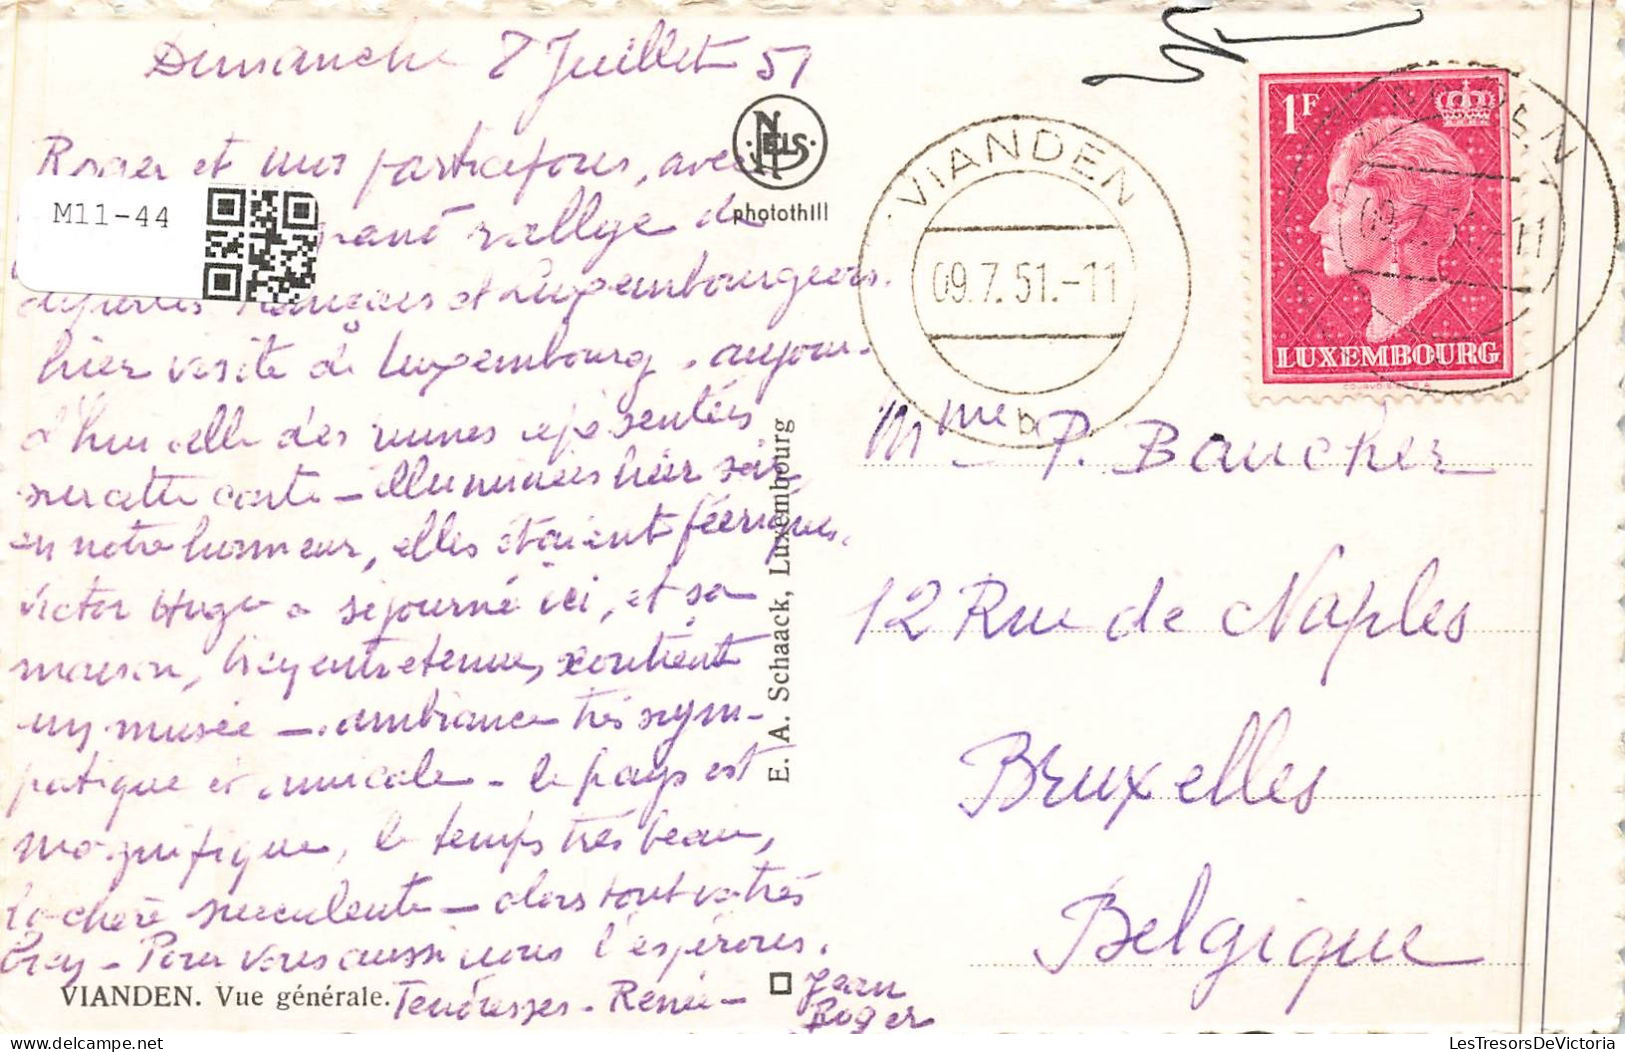 Dimanche 8 Juillet 51
Roger et moi participons, avec
M11-44
grand rallye de
français et Luxembourgeois.
hier visite de Luxembourg. aujour-
d'hui celle des ruines représentées
sur cette carte - illuminées hier soir
en notre honneur, elles étaient féeriques.
Victor Hugo a séjourné ici, et sa
maison, bien entretenue, contient
un musée - ambiance très sym-
patique et amicale - le pays est
magnifique, le temps très beau,
la chère succulente - alors tout va très
bien - Pour vous aussi nous l'espérons.
Tendresses - Renée -
Jean
Roger
VIANDEN. Vue générale.
NELS
photothill
E. A. Schaack, Luxembourg
VIANDEN
09.7.51.-11
b
1F
LUXEMBOURG
COURVOISIER S.A.
09.7.51.-11
Mme P. Baucher
12 Rue de Naples
Bruxelles
Belgique
LesTresorsDeVictoria